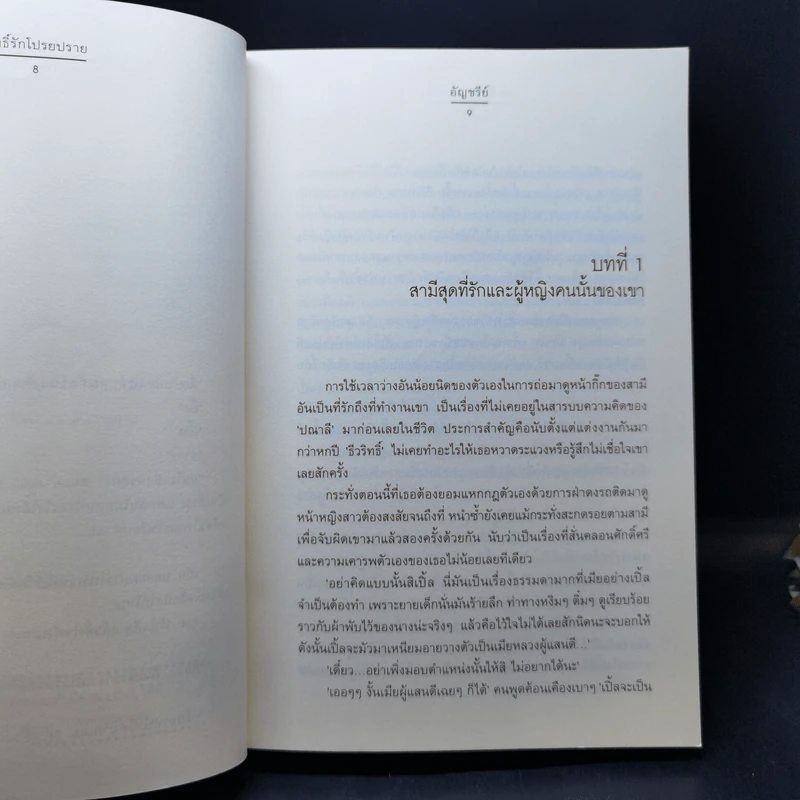 ธิ์รักโปรยปราย
8
อัญชรีย์
9
บทที่ 1
สามีสุดที่รักและผู้หญิงคนนั้นของเขา
การใช้เวลาว่างอันน้อยนิดของตัวเองในการถ่อมาดูหน้ากิ๊กของสามี
อันเป็นที่รักถึงที่ทำงานเขา เป็นเรื่องที่ไม่เคยอยู่ในสารบบความคิดของ
'ปณาลี' มาก่อนเลยในชีวิต ประการสำคัญคือนับตั้งแต่แต่งงานกันมา
กว่าหกปี 'ธีวริทธิ์' ไม่เคยทำอะไรให้เธอหวาดระแวงหรือรู้สึกไม่เชื่อใจเขา
เลยสักครั้ง
กระทั่งตอนนี้ที่เธอต้องยอมแหกกฎตัวเองด้วยการฝ่าดงรถติดมาดู
หน้าหญิงสาวต้องสงสัยจนถึงที่ หนำซ้ำยังเคยแม้กระทั่งสะกดรอยตามสามี
เพื่อจับผิดเขามาแล้วสองครั้งด้วยกัน นับว่าเป็นเรื่องที่สั่นคลอนศักดิ์ศรี
และความเคารพตัวเองของเธอไม่น้อยเลยทีเดียว
'อย่าคิดแบบนั้นสิเปิ้ล นี่มันเป็นเรื่องธรรมดามากที่เมียอย่างเปิ้ล
จำเป็นต้องทำ เพราะยายเด็กนั่นมันร้ายลึก ท่าทางหงิมๆ ติ๋มๆ ดูเรียบร้อย
ราวกับผ้าพับไว้ของนางน่ะจริงๆ แล้วคือไว้ใจไม่ได้เลยสักนิดนะจะบอกให้
ดังนั้นเปิ้ลจะมัวมาเหนียมอายวางตัวเป็นเมียหลวงผู้แสนดี...'
'เดี๋ยว...อย่าเพิ่งมอบตำแหน่งนั้นให้สิ ไม่อยากได้นะ'
'เออๆๆ งั้นเมียผู้แสนดีเฉยๆ ก็ได้' คนพูดค้อนเคืองเบาๆ 'เปิ้ลจะเป็น